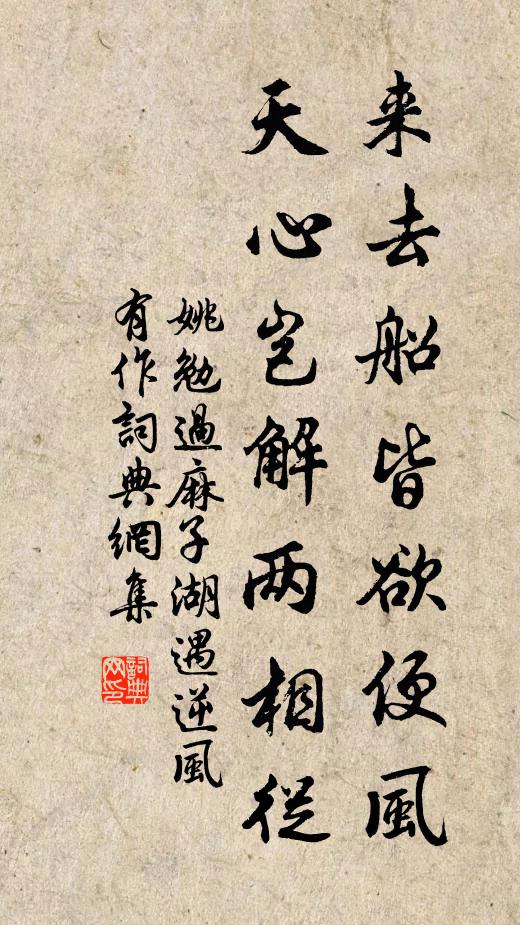 来去船皆欲便風
天心岂解两相從
姚勉過麻子湖遇逆風
有作詞典網集
詞典网印